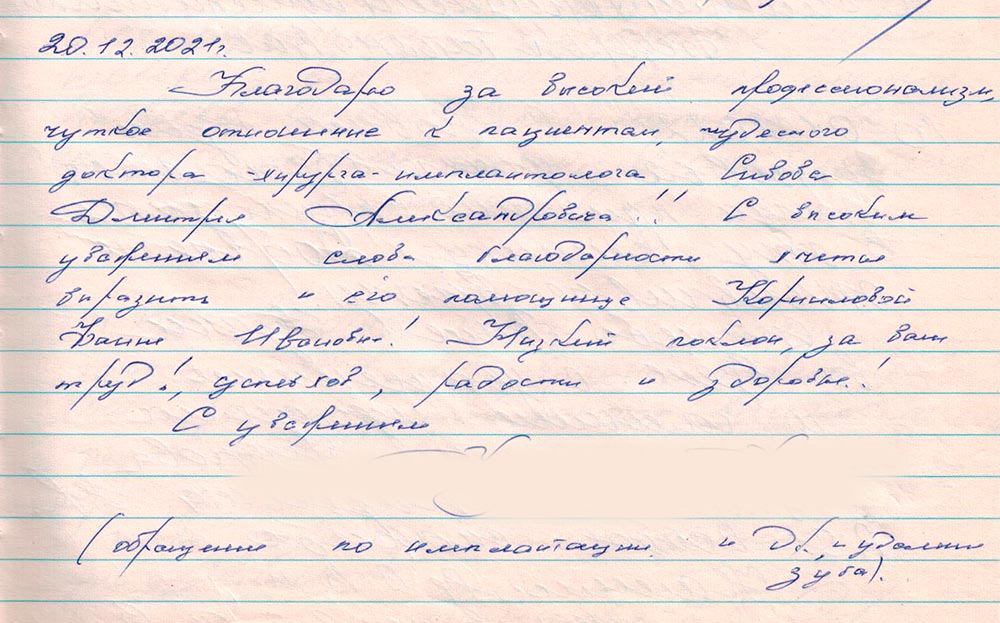 20.12.2021г.
Благодарю за высокий профессионализм,
чуткое отношение к пациентам, чудесного
доктора-хирурга-имплантолога Сивова
Дмитрия Александровича!!! С высоким
уважением слова благодарности хчется
выразить и его помощнице Корниловой
Жанне Ивановне! Низкий поклон, за ваш
труд!, успехов, радости и здоровье!
С уважением
(обращение по имплантации и удалении
зуба).